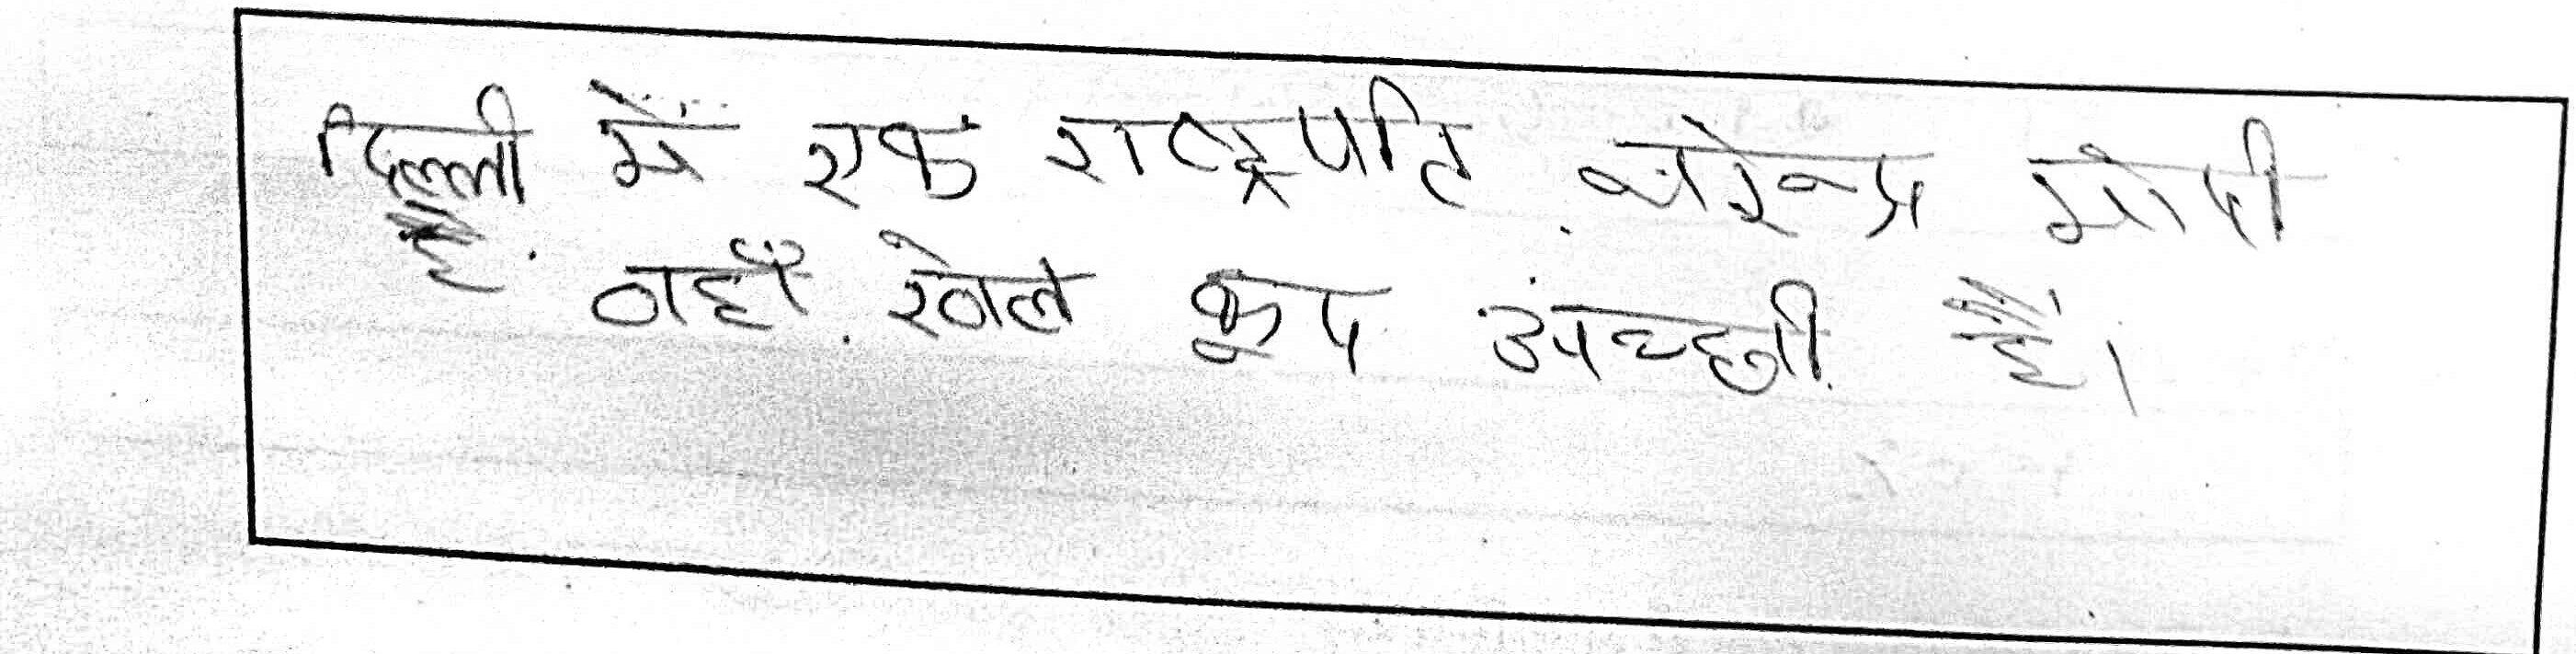 दिल्ली में एक राष्ट्रपति नरेन्द्र मोदी
है. वहाँ. खेल कूद अच्छी है।